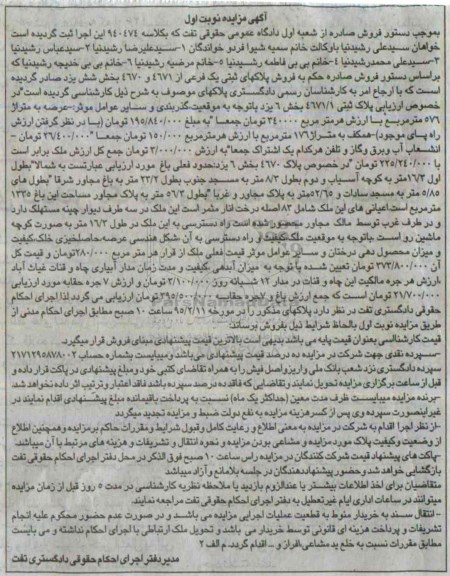 آگهی مزایده نوبت اول
بموجب دستور فروش صادره از شعبه اول دادگاه عمومی حقوقی تفت که بکلاسه ۹۴۰۴۷۴ این اجرا ثبت گردیده است
خواهان سیدعلی رشیدنیا باوکالت خانم سمیه شیرا فردو خواندگان ۱-سیدعلیرضا رشیدنیا ۲-سیدعباس رشیدنیا
۳-سیدعلی محمدرشیدنیا ۴-خانم بی بی فاطمه رشیدنیا ۵-خانم مرضیه رشیدنیا ۶-خانم بی بی خدیجه رشیدنیا که
براساس دستور فروش صادره حکم به فروش پلاکهای ثبتی یک فرعی از ۴۶۷۱ و ۴۶۷۰ بخش شش یزد صادر گردیده
است که با ارجاع امر به کارشناسان رسمی دادگستری پلاکهای موصوف به شرح ذیل کارشناسی گردیده است"در
خصوص ارزیابی پلاک ثبتی ۴۶۷۱/۱ بخش ۶ یزد باتوجه به موقعیت-گذربندی و سایر عوامل موثر-عرصه به متراژ
۵۷۶ مترمربع با ارزش هرمتر مربع ۳۴۰۰۰۰ تومان جمعا "به مبلغ ۱۹۵/۸۴۰/۰۰۰ تومان (با در نظر گرفتن ارزش
راه پای موجود)-همکف به متراژ۱۷۶ مترمربع با ارزش هرمترمربع ۱۵۰/۰۰۰ تومان جمعا "۲۶/۴۰۰/۰۰۰ تومان -
انشعاب آب وبرق وگاز و تلفن هرکدام یک اشتراک جمعا"به ارزش ۳/۰۰۰/۰۰۰ تومان جمع کل ارزش ملک برابر است
با ۲۲۵/۲۴۰/۰۰۰ تومان "در خصوص پلاک ۴۶۷۰ بخش ۶ یزدحدود فعلی باغ مورد ارزیابی عبارتست به شمالا"بطول
اول ۱۶/۳متر به کوچه آسیاب و دوم بطول ۸/۳ متر به مسجد جنوب بطول ۲۳/۲ متر به باغ مجاور شرقا "بطول های
۵/۸۵ متر به مسجد سادات و ۵۲/۶۵متر به پلاک مجاور و غربا "بطول ۵۶/۳ متر به پلاک مجاور مساحت این باغ ۱۳۳۵
مترمربع است اعیانی های این ملک شامل ۸۳اصله درخت انار مثمر است این ملک در سه طرف دیوار چینه مستهلک دارد
و در طرف غرب توسط مالک مجاور محصور شده است راه دسترسی به این ملک در طول ۱۶/۳ متر به صورت کوچه
ماشین رو است .باتوجه به موقعیت ملک کیفیت و راه دسترسی به آن .شکل هندسی عرصه.حاصلخیزی خاک-کیفیت
و میزان محصول دهی درختان و سایر عوامل موثر قیمت فعلی ملک از قرار هر متر مربع ۲۸۰/۰۰۰ تومان و قیمت کل
آن ۳۷۳/۸۰۰/۰۰۰ تومان تعیین شده با توجه به میزان آبدهی .کیفیت و مدت زمان مدار آبیاری چاه و قنات غیاث آباد
.ارزش هر جره مالکیت این چاه و قنات در مدار ۱۲ شبانه روز ۳/۱۰۰/۰۰۰ تومان و ارزش ۷ جره حقابه مورد ارزیابی
۲۱/۷۰۰/۰۰۰ تومان است که جمع ارزش باغ و ۷جره حقابه ۳۹۵/۵۰۰/۰۰۰ تومان ارزیابی می گردد لذا اجرای احکام
حقوقی دادگستری تفت در نظر دارد پلاکهای مذکور را در مورخه ۹۵/۲/۱۱ ساعت ۱۰ صبح مطابق اجرای احکام مدنی از
طریق مزایده نوبت اول بالحاظ شرایط ذیل بفروش برساند:
قیمت کارشناسی بعنوان قیمت پایه می باشد بدیهی است بالاترین قیمت پیشنهادی مبنای فروش قرار میگیرد.
-سپرده نقدی جهت شرکت در مزایده ده درصد قیمت پیشنهادی می باشد و میبایست بشماره حساب ۲۱۷۱۲۹۵۸۷۸۰۰۲
سپرده دادگستری نزد شعب بانک ملی واریز و اصل فیش را به همراه تقاضای کتبی خود و مبلغ پیشنهادی در پاکت قرار داده و
قبل از ساعت برگزاری مزایده تحویل نمایند و تقاضایی که فاقد ده درصد سپرده باشد فاقد اعتبار و ترتیب اثر داده نخواهد شد
-برنده مزایده میبایست ظرف مدت معین (حداکثر یک ماه) نسبت به پرداخت باقیمانده مبلغ پیشنهادی اقدام نمایند در
غیر اینصورت سپرده وی پس از کسر هزینه مزایده به نفع دولت ضبط و مزایده تجدید میگردد
-از نظر اجرا اقدام به شرکت در مزایده به معنی اطلاع و رعایت کامل و قبول شرایط و مقررات حاکم برمزایده و همچنین اطلاع
از وضعیت و کیفیت پلاک مورد مزایده و مشاعی بودن مزایده و نحوه انتقال و تشریفات و هزینه های مرتبط با آن میباشد.
-پاکت های پیشنهاد قیمت شرکت کنندگان در مزایده راس ساعت ۱۰ صبح فوق الذکر در محل دفتر اجرای احکام حقوقی تفت
بازگشایی خواهد شد و حضور پیشنهاد دهندگان در جلسه بلامانع و آزاد میباشد
متقاضیان برای اخذ اطلاعات بیشتر یا عندالزوم بازدید یا ملاحظه نظریه کارشناسی در مدت ۵ روز قبل از زمان مزایده
میتوانند در ساعات اداری ایام غیر تعطیل به دفتر اجرای احکام حقوقی تفت مراجعه نمایند.
- انتقال سند به خریدار منوط به قطعیت عملیات اجرایی مزایده می باشد و در صورت عدم حضور محکوم علیه انجام
تشریفات و پرداخت هزینه ای قانونی توسط خریدار می باشد و تحویل ملک ارتباطی با اجرای احکام نداشته و می بایست
مطابق مقررات نسبت به خلع ید مشاعی.افراز و ... اقدام گردد. م الف ۲
مدیر دفتر اجرای احکام حقوقی دادگستری تفت